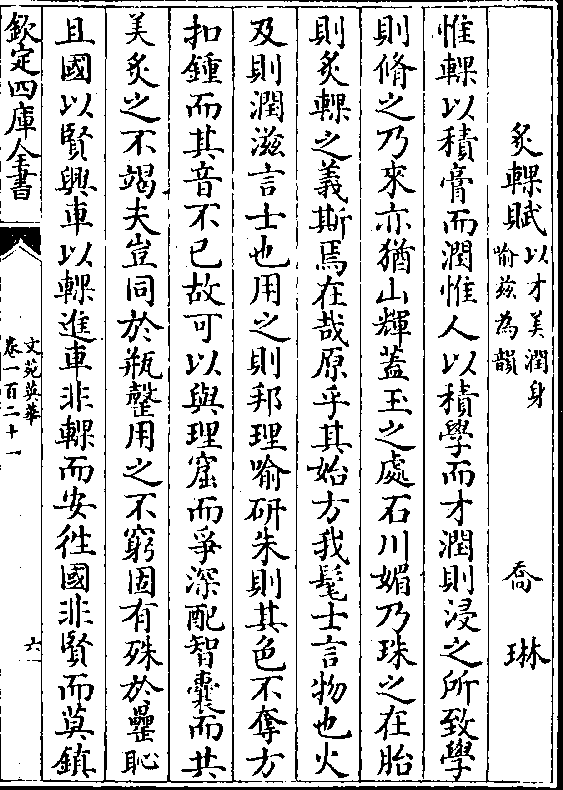 炙輠賦以才美潤身喻兹為韻 喬琳
惟輠以積膏而潤惟人以積學而才潤則浸之所致學
則脩之乃來亦猶山輝蓋玉之處石川媚乃珠之在胎
則炙輠之義斯焉在哉原乎其始方我髦士言物也火
及則潤滋言士也用之則邦理喻研朱則其色不奪方
扣鍾而其音不已故可以與理窟而爭深配智囊而共
美炙之不竭夫豈同於瓶罄用之不窮固有殊於罍恥
且國以賢興車以輠進車非輠而安徃國非賢而莫鎮
欽定四庫全書 文苑英華卷一百二十一 六